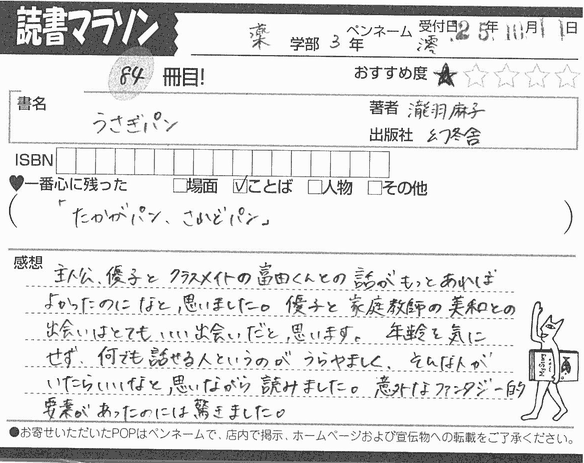 読書マラソン
薬 学部 3 年 ペンネーム 澪 受付日 25年10月11日
84 冊目! おすすめ度 ★☆☆☆☆
書名 うさぎパン
著者 瀧羽麻子
出版社 幻冬舎
ISBN
♥一番心に残った □場面 ☑ことば □人物 □その他
(「たかがパン、されどパン」)
感想
主人公、優子とクラスメイトの富田くんとの話がもっとあれば
よかったのになと思いました。優子と家庭教師の美和との
出会いはとてもいい出会いだと思います。年齢を気に
せず、何でも話せる人というのがうらやましく、そんな人が
いたらいいなと思いながら読みました。意外なファンタジー的
要素があったのには驚きました。
●お寄せいただいたPOPはペンネームで、店内で掲示、ホームページおよび宣伝物への転載をご了承ください。